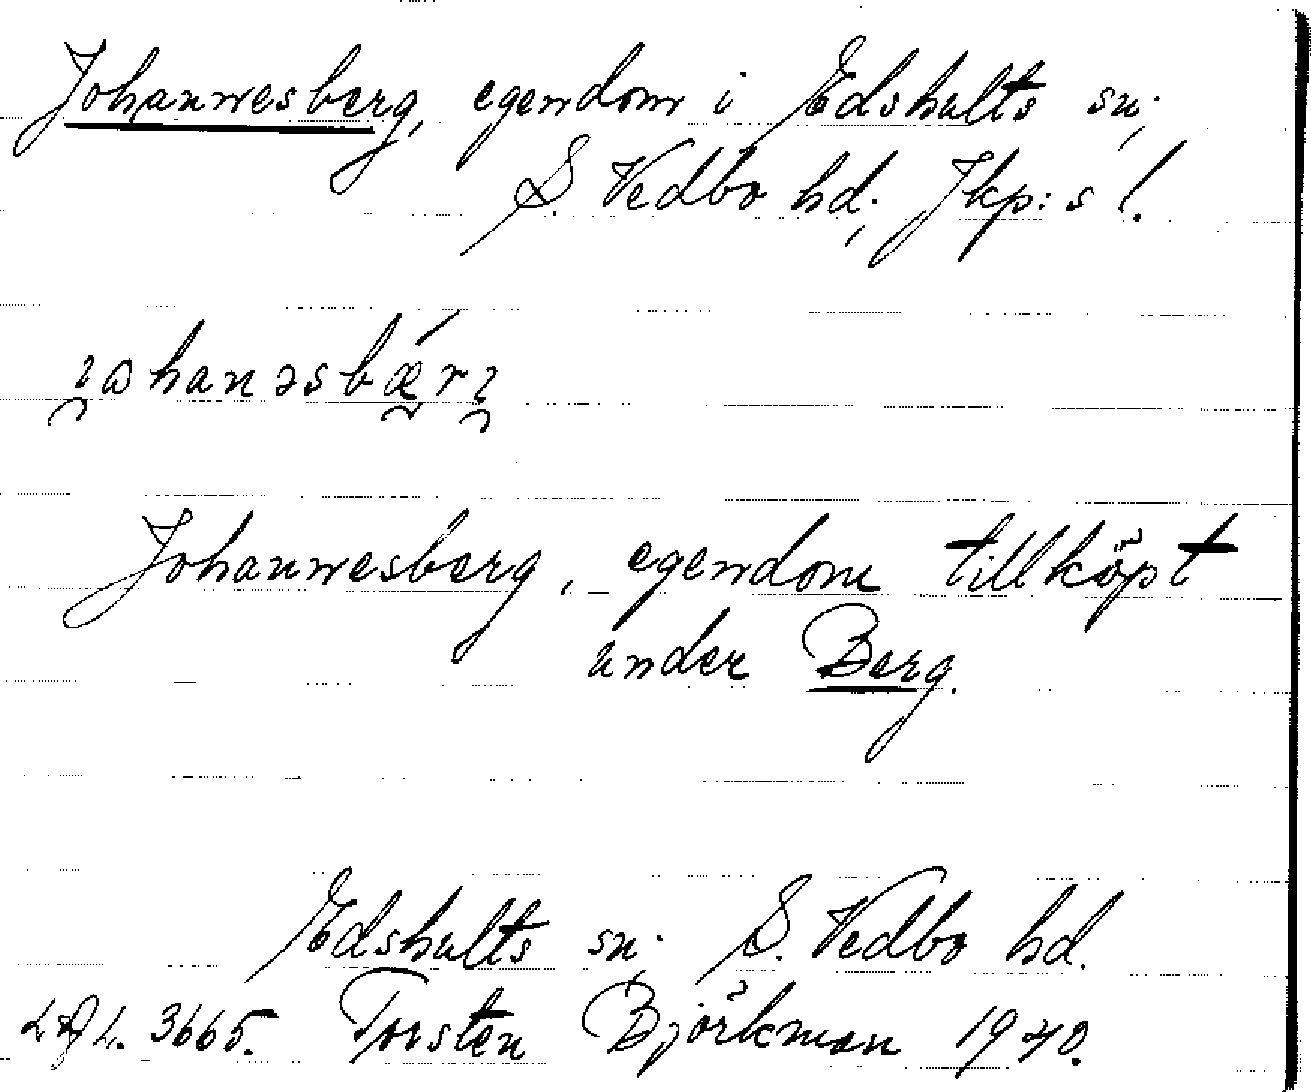 Johannesberg, egendom i Edshults sn;
S. Vedbo hd; Jkp:s l.
Johannesberg, egendom tillköpt
under Berg.
Edshults sn; S. Vedbo hd.
3665. Torsten Björkman 1940.